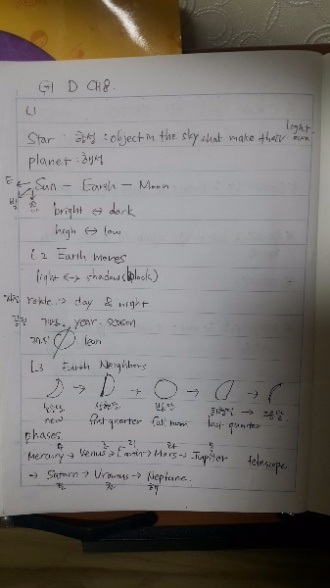 G1 D CH8.
L1
Star : 항성 : object in the sky that make their own light.
planet : 행성
E ← Sun - Earth - Moon
bright ↔ dark
high ↔ low
L2 Earth moves
light ↔ shadow (block)
rotate → day & night
year. season
lean
L3 Earth Neighbors
→ → → →
new first quarter full moon last quarter
phases
Mercury → Venus → Earth → Mars → Jupiter telescope
→ Saturn → Uranus → Neptune.